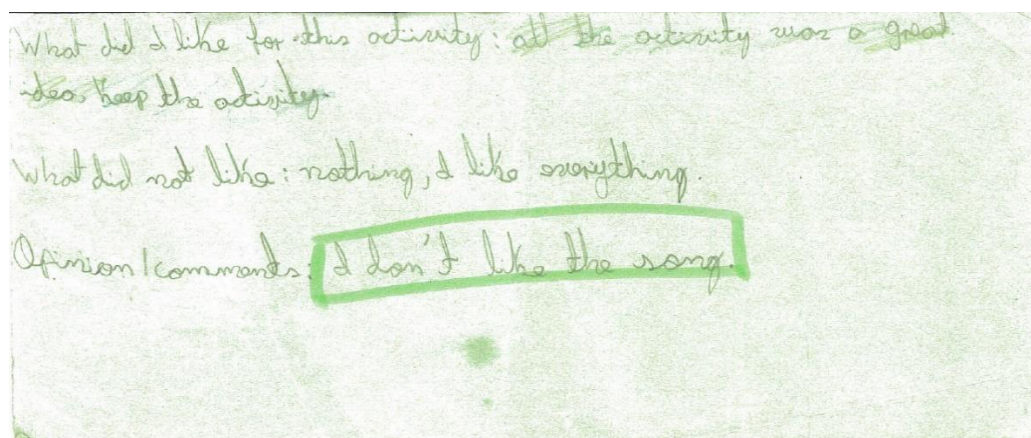 What did I like for this activity: all the activity was a great
idea, keep the activity.
What did not like: nothing, I like everything.
Opinion/comments: I don't like the song.